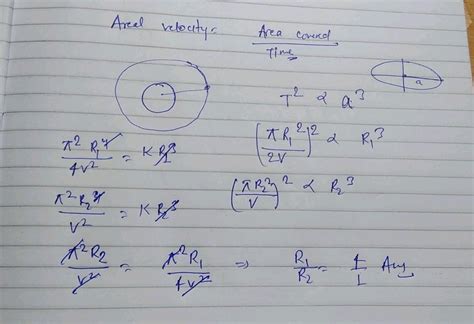 Areal velocity = Area covered / Time
a
T² ∝ a³
π² R₁⁴ / 4v² = K R₁³
(π R₁² / 2v)² ∝ R₁³
π² R₂⁴ / v² = K R₂³
(π R₂² / v)² ∝ R₂³
π² R₂ / v² = π² R₁ / 4v² ⇒ R₁ / R₂ = 4 / 1 Ans